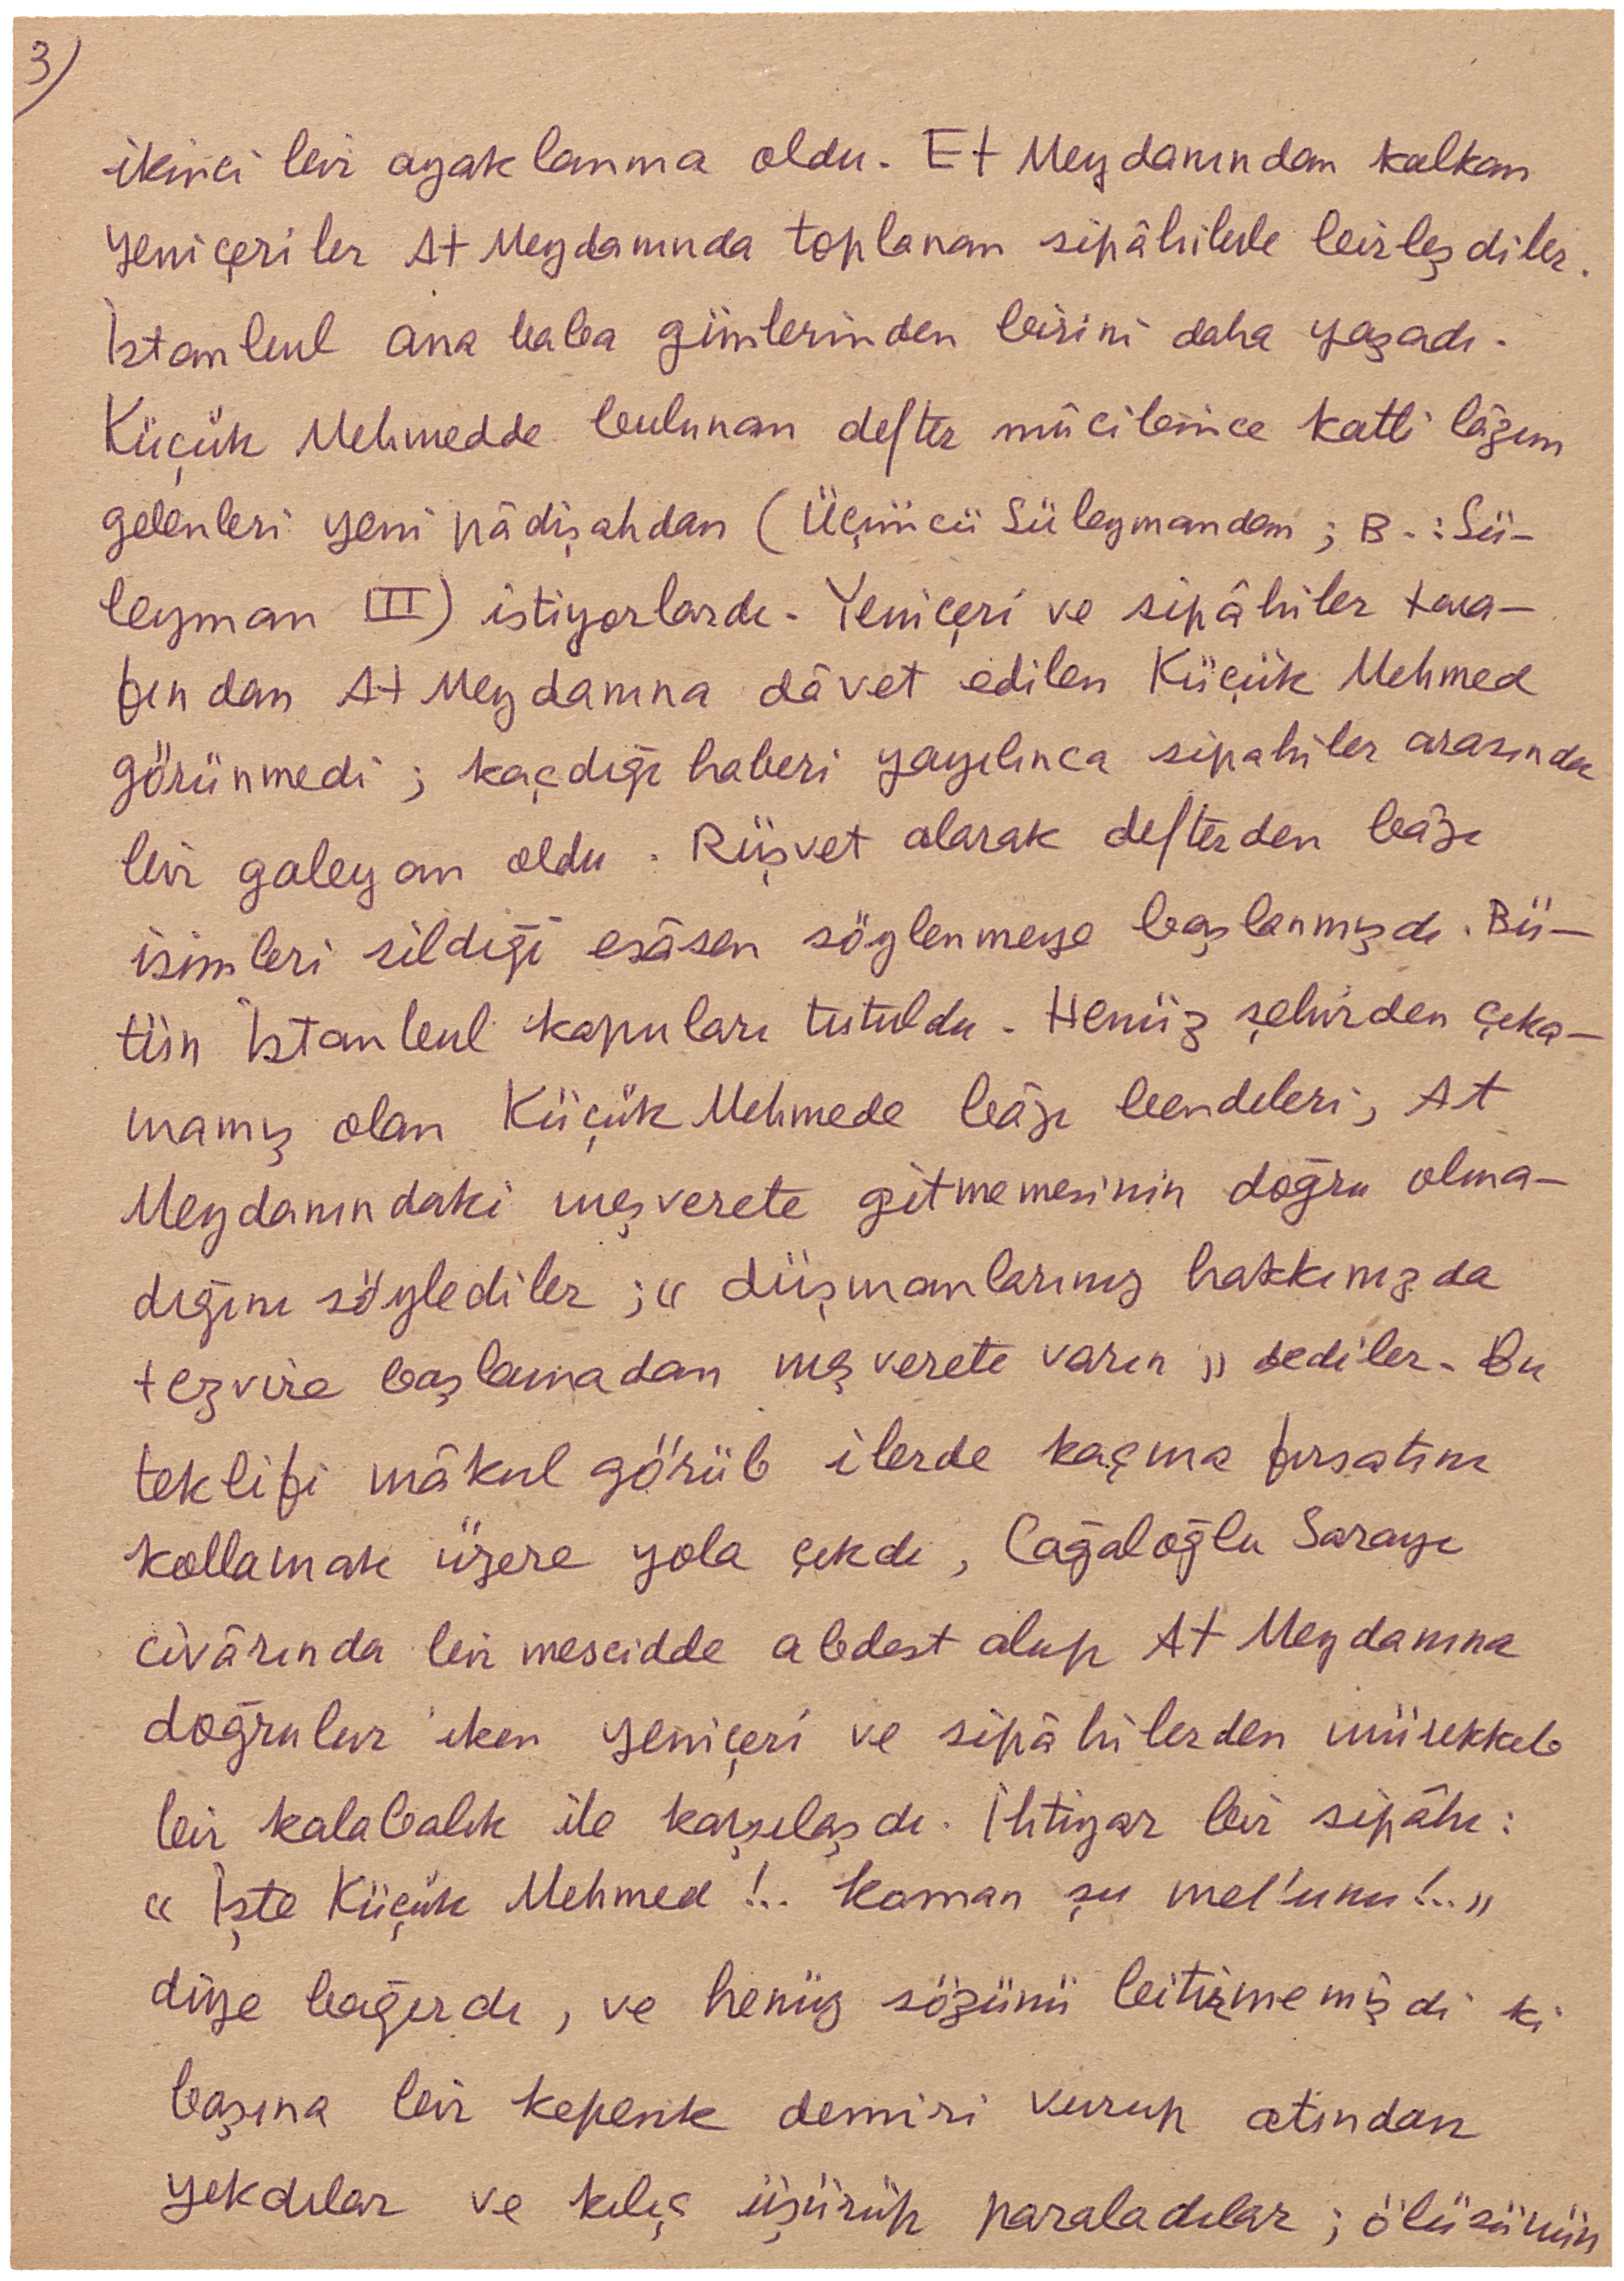 3)
ikinci bir ayaklanma oldu. Et Meydanından kalkan
yeniçeriler At Meydanında toplanan sipâhilerle birleşdiler.
İstanbul ana baba günlerinden birini daha yaşadı.
Küçük Mehmedde bulunan defter mûcibince katli lâzım
gelenleri yeni pâdişahdan (Üçüncü Süleymandan ; B. : Sü-
leyman III) istiyorlardı. Yeniçeri ve sipâhiler tara-
fından At Meydanına dâvet edilen Küçük Mehmed
görünmedi ; kaçdığı haberi yayılınca sipahiler arasında
bir galeyan oldu. Rüşvet alarak defterden bâzı
isimleri sildiği esâsen söylenmeye başlanmışdı. Bü-
tün İstanbul kapuları tutuldu. Henüz şehirden çıka-
mamış olan Küçük Mehmede bâzı bendeleri, At
Meydanındaki meşverete gitmemesinin doğru olma-
dığını söylediler ; « düşmanlarınız hakkınızda
tezvire başlamadan meşverete varın » dediler. Bu
teklifi mâkul görüb ilerde kaçma fırsatını
kollamak üzere yola çıkdı, Cağaloğlu Sarayı
civârında bir mescidde abdest alup At Meydanına
doğrulur iken yeniçeri ve sipâhilerden mürekkeb
bir kalabalık ile karşılaşdı. İhtiyar bir sipâhi :
« İşte Küçük Mehmed !.. koman şu mel'unu!.. »
diye bağırdı, ve henüz sözünü bitirmemişdi ki
başına bir kepenk demiri vurup atından
yıkdılar ve kılıç üşürüp paraladılar ; ölüsünün